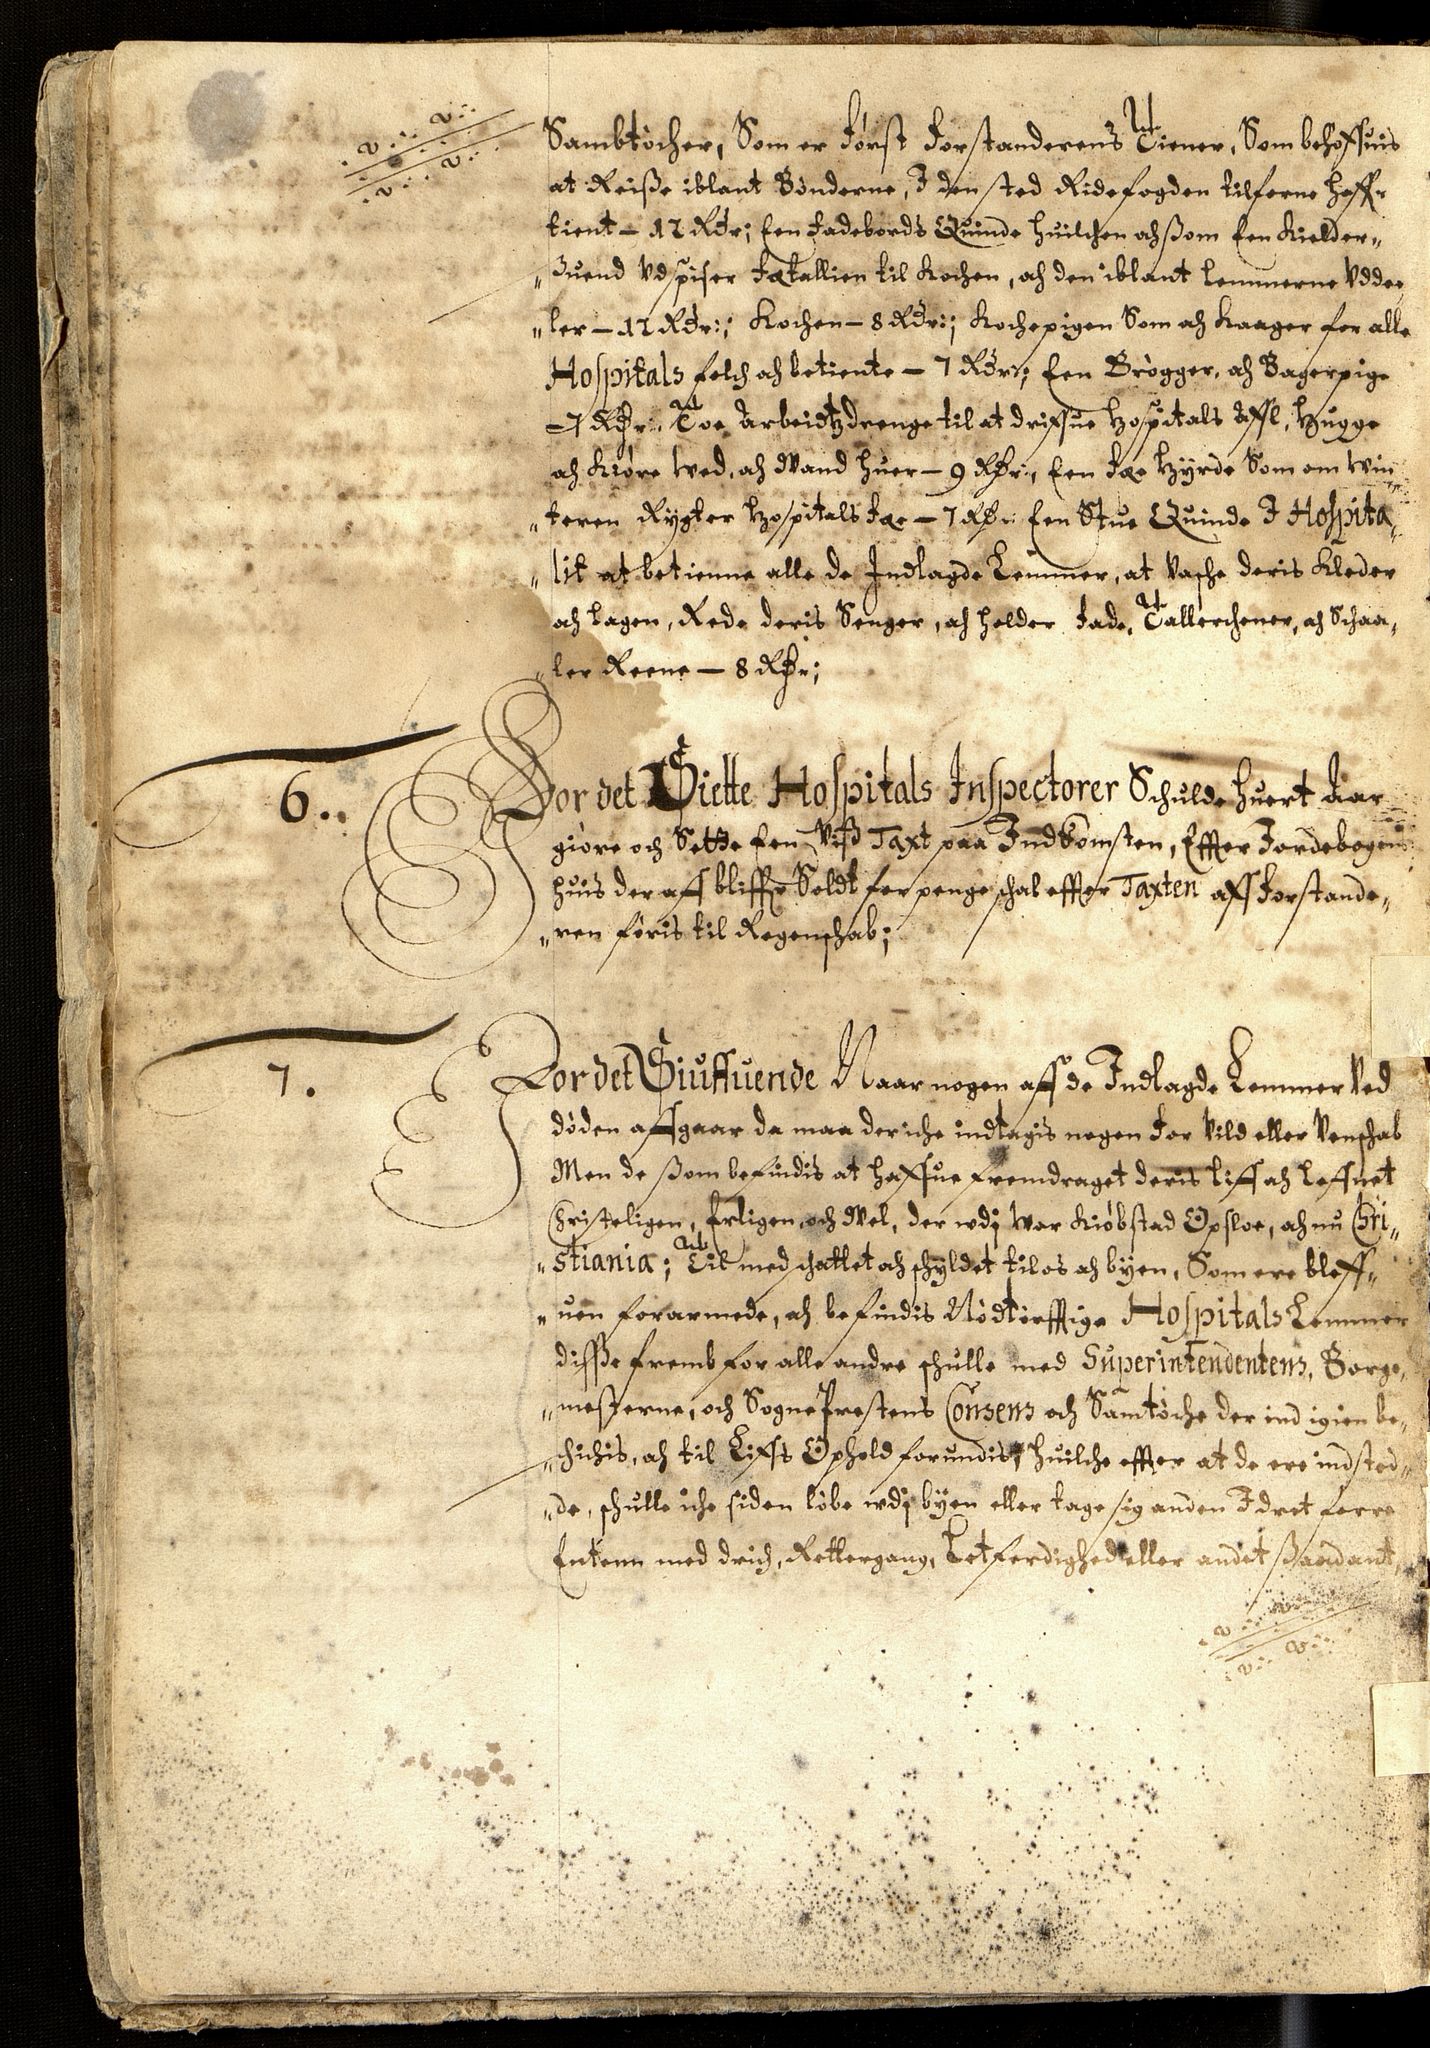 Sambtöcher, Som er först Forstanderens Tiener, Som behöffuis
at Reiße iblant Bönderne, I den sted Ridefogden tilforne haffr
tient – 12 Rdr; Een Fadebords Quinde huilchen och ßom Een Kielder„
„Suend Vdspiser Fetallien til Kochen, och den iblant Lemmerne Vddee„
„ler – 12 Rdr:; Kochen – 8 Rdr:; Kochepigen Som och Kaager for alle
Hospitals folch och betiente – 7 Rdr:; Een Brögger, och Bagerpige
– 7 Rdr:. Toe Arbeidtzdrenge til at driffue Hospitals Affl, Hugge
och Kiöre Wed, och Wand huer – 9 Rdr:, Een Fæ Hyrde Som om Win„
„teren Rygter Hospitals Fæ – 7 Rdr: Een Stue Quinde I Hospita„
„lit at betienne alle de Indlagde Lemmer, at Vasche deris Kleder
och lagen, Rede deris Senger, och holder Fade, Tallerchener, och Schaa„
„ler Reene – 8 Rdr;
6..
For det Siette Hospitals Inspectorer Schulde huert Aar
giöre och Sette Een Viß Taxt paa Indkomsten, Effter Jordebogens
huis der aff bliffr Soldt for penge schal effter Taxten aff Forstande„
„ren föris til Regenschab;
7.
For det Siuffuende Naar nogen aff de Indlagde Lemmer Ved
döden affgaar da maa der iche indtagis nogen For Vild eller Venschab
Men de ßom befindis at haffue fremdraget deris liff och leffnet
Christeligen, Erligen, och Wel, der wdj Wor Kiöbstad Opsloe, och nu Chri„
„stiania; Til med schattet och schyldet til os och byen, Som ere bleff„
„uen forarmede, och befindis Nödtörfftige Hospitals Lemmer
diße fremb for alle andre schulle med Superintendentens, Borge„
„mesterne, och Sogne Prestens Consens och Samtöche der ind igien be„
„schichis, och til Liffs Ophold forundis, huilche effter at de ere indsted„
„de, schulle iche siden löbe wdj byen eller tage sig anden Idret forre
Entenn med drich, Rettergang, Letferdighed eller andet ßaadant,